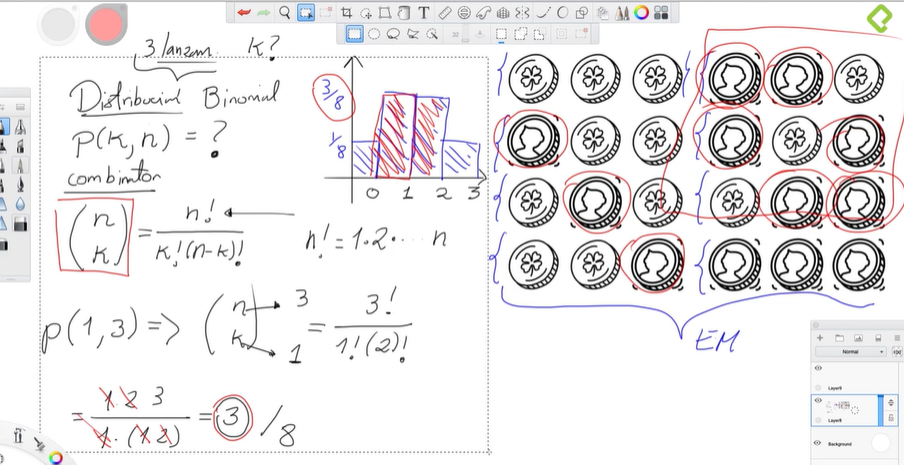 3 lanzam. k?
Distribución Binomial
P(k,n) = ?
combinator
(n k) = n! / k!(n-k)!
n! = 1·2· ··· n
3/8
1/8
0 1 2 3
p(1,3) => (n k) → 3 → 1 = 3! / 1!(2)!
= 1·2 3 / 1·(1·2) = 3 / 8
EM
T
32
Normal
Layer9
Layer8
Background